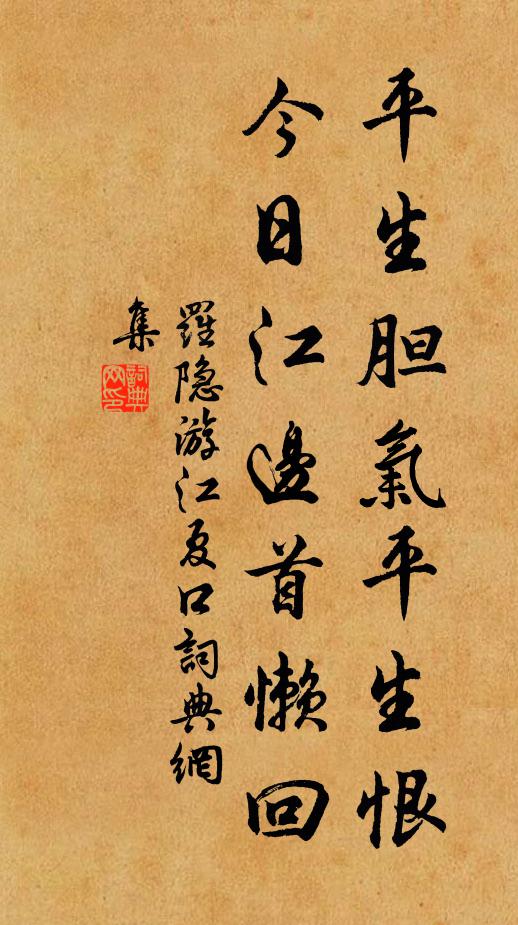 平生胆氣平生恨
今日江邊首懶回
羅隐游江夏口詞典網
集
詞典网印